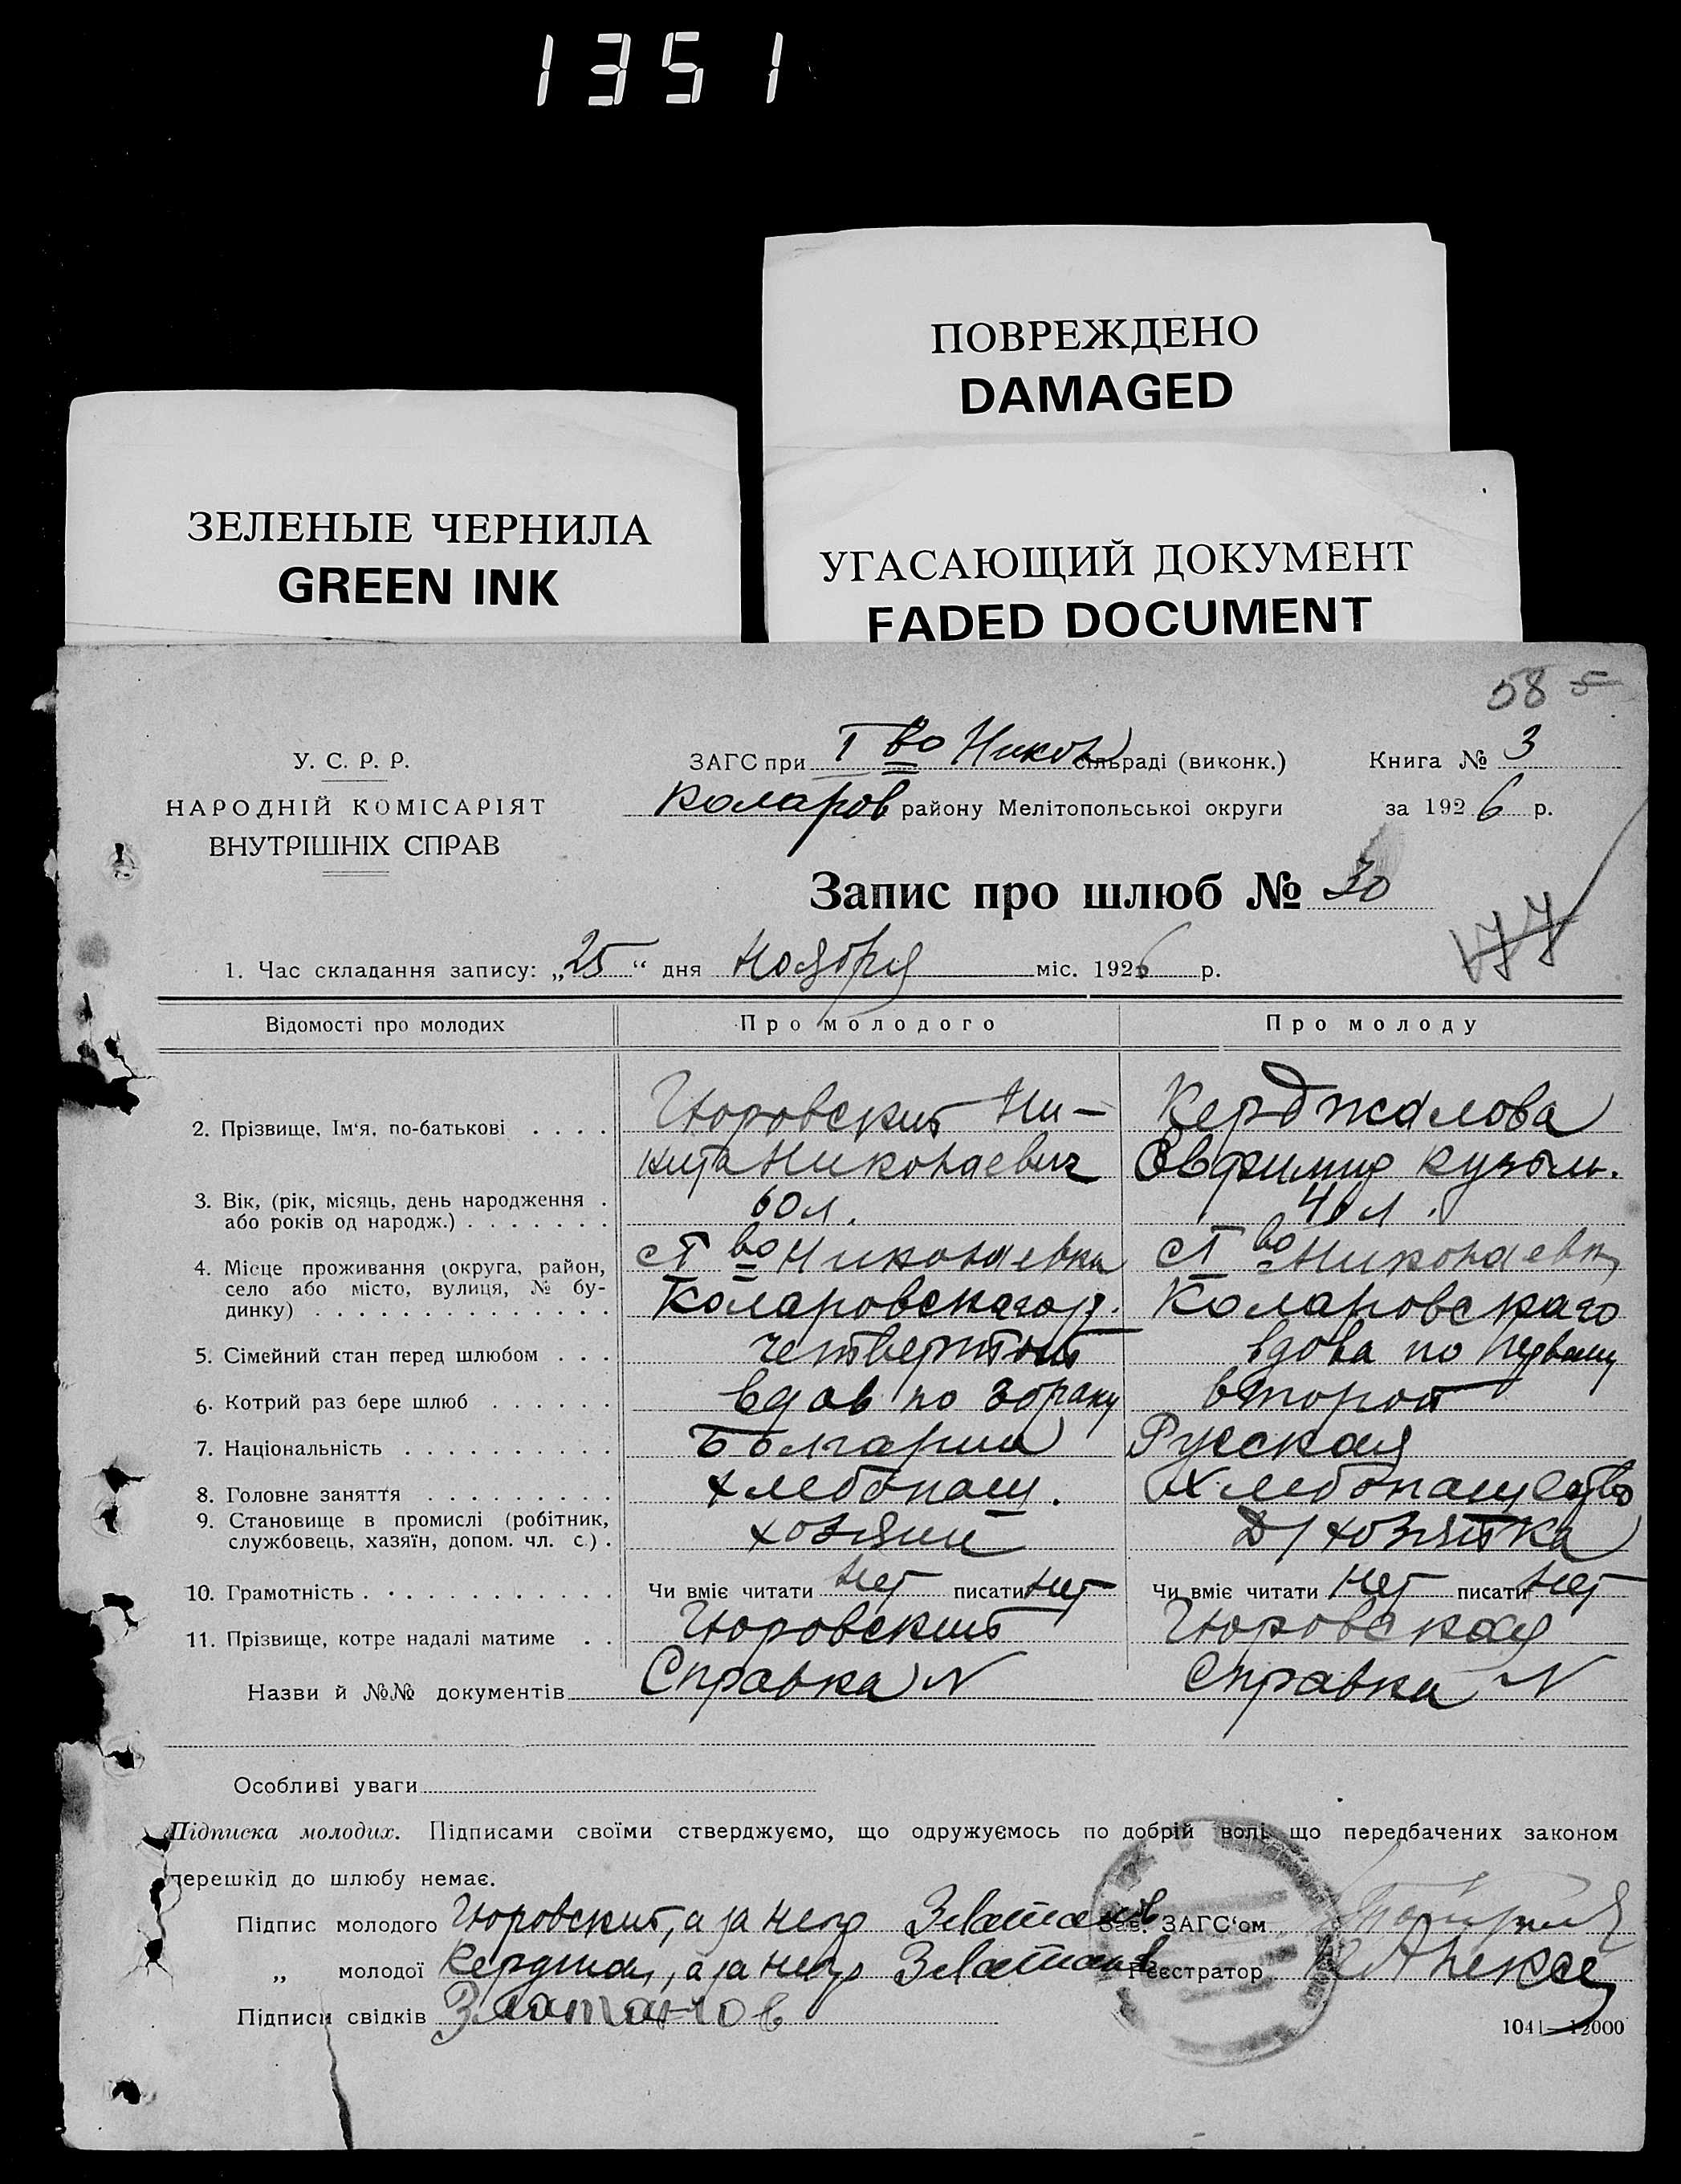 1351
ПОВРЕЖДЕНО
DAMAGED
ЗЕЛЕНЫЕ ЧЕРНИЛА
GREEN INK
УГАСАЮЩИЙ ДОКУМЕНТ
FADED DOCUMENT
58
У. С. Р. Р.
НАРОДНІЙ КОМІСАРІЯТ
ВНУТРІШНІХ СПРАВ
ЗАГС при I во Никол сільраді (виконк.)
Коларов району Мелітопольської округи
Книга № 3
за 1926 р.
Запис про шлюб № 30
177
1. Час складання запису: „25“ дня Ноября міс. 1926 р.
Відомості про молодих Про молодого Про молоду
2. Прізвище, Ім'я, по-батькові . . . . Гюровский Ни- Керджалова
кита Николаевич Евфимия Кузьм.
3. Вік, (рік, місяць, день народження . або років од народж.) . . . . . . . 60 л. 40 л.
4. Місце проживання (округа, район, село або місто, вулиця, № будинку) . . . . . . . . . . . . . . с I во Николаевка с I во Николаевк
Коларовскаго р. Коларовскаго
5. Сімейний стан перед шлюбом . . . четвертый вдова по первому
6. Котрий раз бере шлюб . . . . . . вдов по 3 браку второй
7. Національність . . . . . . . . . . Болгарин Русская
8. Головне заняття . . . . . . . . . хлебопаш. Хлебопашество
9. Становище в промислі (робітник, службовець, хазяїн, допом. чл. с.) . хозяин Д/хозяйка
10. Грамотність . . . . . . . . . . . Чи вміє читати нет писати нет Чи вміє читати нет писати нет
11. Прізвище, котре надалі матиме . . Гюровский Гюровская
Назви й №№ документів Справка N Справка N
Особливі уваги
Підписка молодих. Підписами своїми стверджуємо, що одружуємось по добрій волі, що передбачених законом
перешкід до шлюбу немає.
Підпис молодого Гюровский, а за него Златанов Зав. ЗАГС'ом
„ молодої Керджал, а за него Златанов Реєстратор
Підписи свідків Златанов
1041—12000